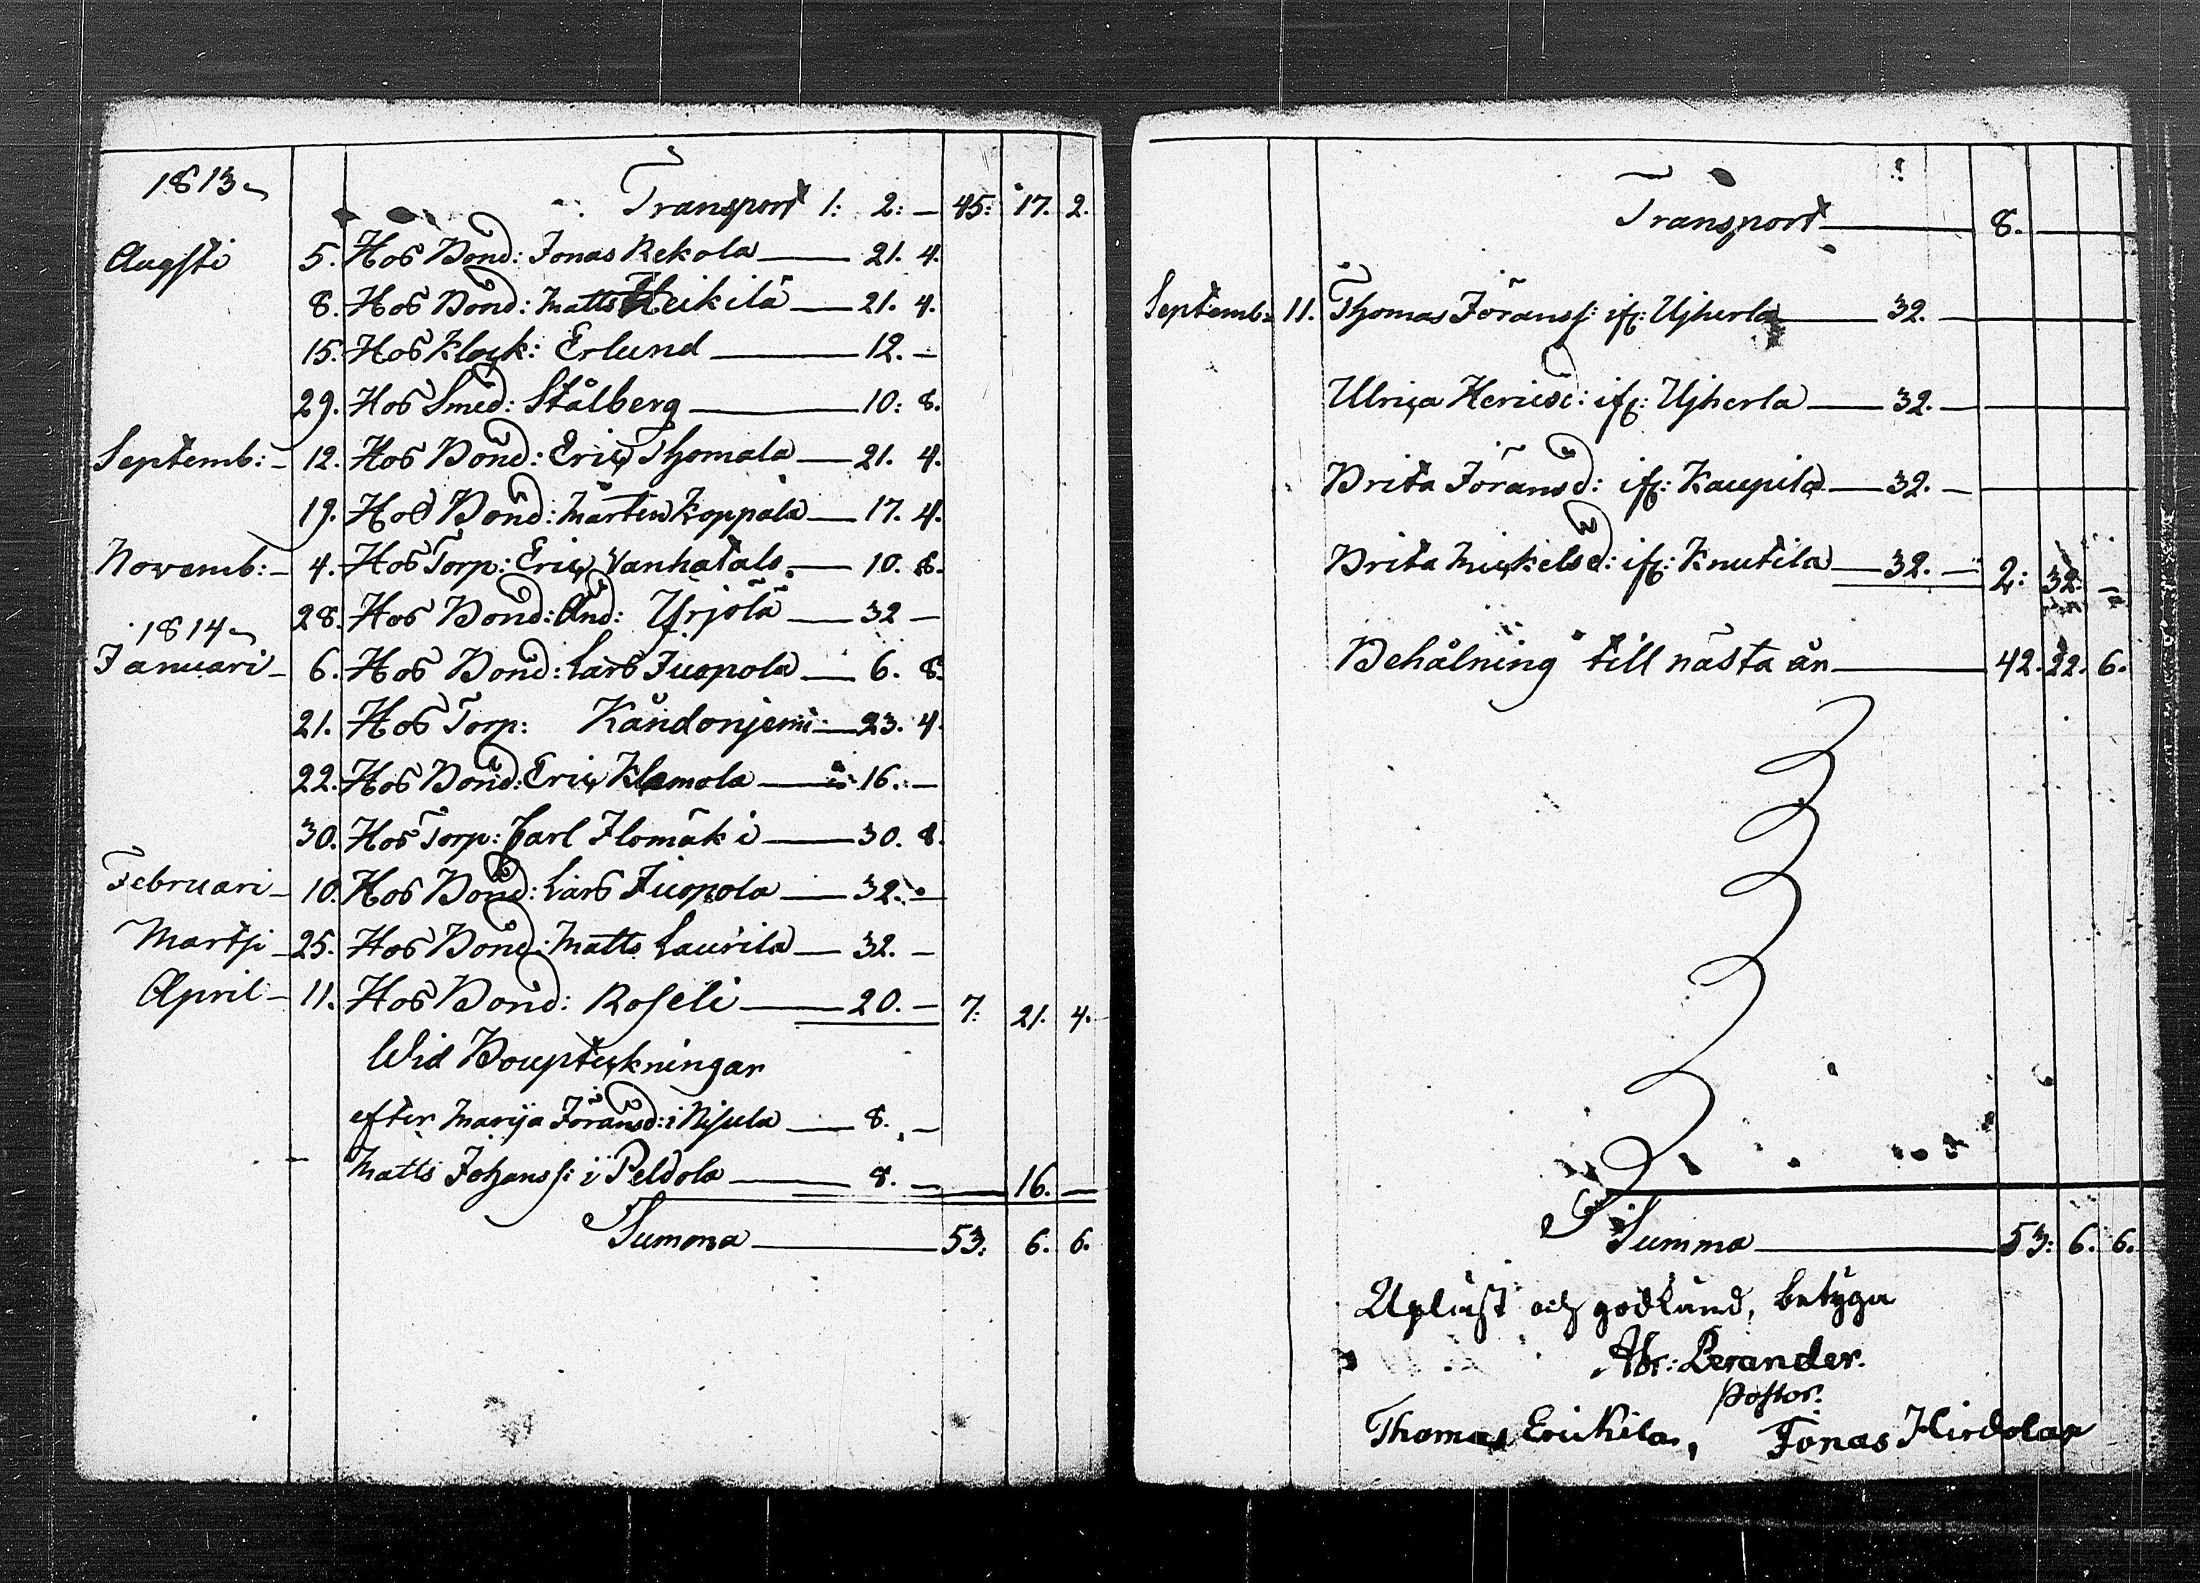 1813
Transport 1: 2: — 45: 17. 2.
Augsti 5. Hos Bond: Jonas Rekola — 21. 4.
8. Hos Bond: Matts Heikilä — 21. 4.
15. Hos Klock: Erlund — 12. —
29. Hos Smed: Stålberg — 10: 8.
Septemb: — 12. Hos Bond: Eric Thomala — 21. 4.
19. Hos Bond: Mårten Koppala — 17. 4.
Novemb: — 4. Hos Torp: Eric Vanhatalo — 10. 8.
28. Hos Bond: And: Yrjölä — 32 —
1814
Januari — 6. Hos Bond: Lars Juopola — 6. 8.
21. Hos Torp: Kåndonjemi — 23. 4.
22. Hos Bond: Eric Klemola — 16. —
30. Hos Torp: Carl Ilomäki — 30. 8.
Februari — 10. Hos Bond: Lars Juopola — 32. —
Martji — 25. Hos Bond: Matts Laurila — 32. —
April — 11. Hos Bond: Roseli — 20. — 7: 21. 4.
Wid Bouptekningar
efter Marija Jöransd: i Nisula — 8. —
Matts Johanss: i Peldola — 8. — 16. —
Summa — 53: 6. 6.
Transport — 8. —
Septemb: 11. Thomas Jöranss: ifr: Ujherla — 32. —
Ulrica Hericsd: ifr: Ujherla — 32. —
Brita Jöransd: ifr: Kaupila — 32. —
Brita Mickelsd: ifr: Knutila — 32. — 2: 32: —
Behålning till nästa år — 42. 22. 6.
Summa — 53: 6. 6.
Upläst och godkänd, betyga
Abr: Perander.
Pastor.
Thomas Erickila, Jonas Hirvolan